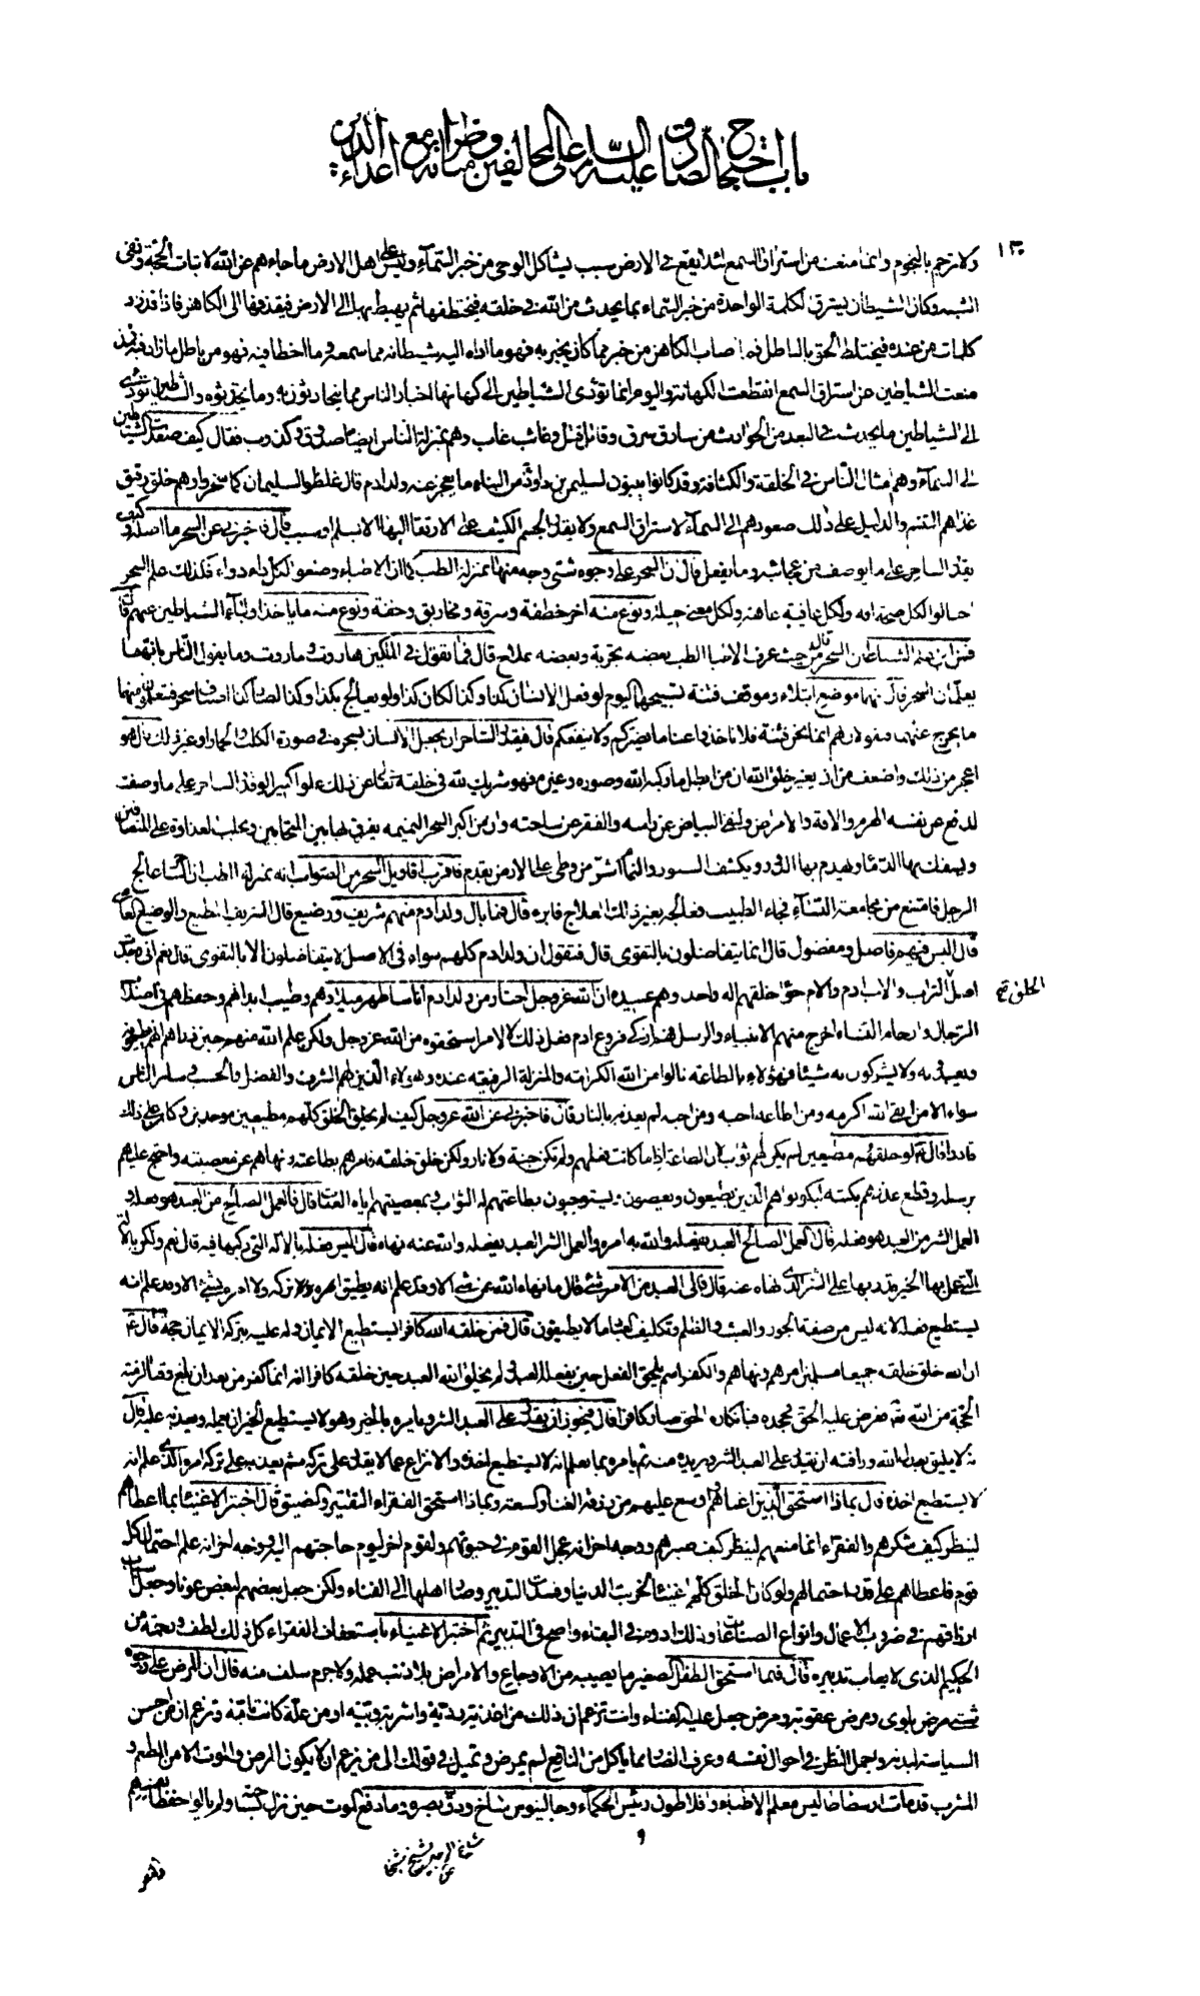 باب احتجاج الصادق عليه السلام على المخالفين ومناظراته مع اعداء الدين
١٣٠
ولا ترجم بالنجوم وانما منعت من استراق السمع لئلا يقع فى الارض سبب يشاكل الوحى من خبر السمآء ولبس على اهل الارض ما جاءهم عن الله لاثبات الحجة ونفى
الشبه وكان الشيطان يسترق الكلمة الواحدة من خبر السماء بما يحدث من الله فى خلقه فيختطفها ثم يهبط بها الى الارض فيقذفها الى الكاهن فاذا قد زاد
كلمات من عنده فيختلط الحق بالباطل فما اصاب الكاهن من خبر مما كان يخبر به فهو ما اداه اليه شيطانه مما سمعه وما اخطا فيه فهو من باطل ما زاد فيه فمذ
منعت الشياطين عن استراق السمع انقطعت الكهانة واليوم انما تؤدى الشياطين الى كهانها اخبار الناس مما يتحادثون به وما يحدثونه والشياطين تؤدى
الى الشياطين ما يحدث فى البعد من الحوادث من سارق سرق وقاتل قتل وغائب غاب وهم بمنزلة الناس ايضا صدوق وكذوب فقال كيف صعدت الشياطين
الى السمآء وهم امثال الناس فى الخلقة والكثافة وقد كانوا يبنون لسليمن بن داود من البناء ما يعجز عنه ولد ادم قال غلظوا لسليمان كما سخروا وهم خلق رقيق
غذاهم التنسم والدليل على ذلك صعودهم الى السمآء لاستراق السمع ولا يقدر الجسم الكثيف على الارتقا اليها الا بسلم او سبب قال فاخبرنى عن السحر ما اصله وكيف
يقدر الساحر على ما يوصف من عجائبه وما يفعل قال ان السحر على وجوه شتى وجه منها بمنزلة الطب كما ان الاطباء وضعوا لكل داء دواء فكذلك علم السحر
احتالوا لكل صحة افه ولكل عافية عاهة ولكل معنى حيلة ونوع منه اخر خطفة وسرعة ومخاريق وخفة ونوع منه ما ياخذ اولياء الشياطين عنهم قال
فمن اين علم الشياطين السحر قال من حيث عرف الاطبا الطب بعضه تجربة وبعضه علاج قال فما تقول فى الملكين هاروت وماروت وما يقول الناس بانهما
يعلمان السحر قال انهما موضع ابتلاء وموقف فتنة تسبيحهما اليوم لو فعل الانسان كذا وكذا لكان كذا ولو يعالج بكذا وكذا لصار كذا اصناف سحر فيتعلمون منهما
ما يخرج عنهما فيقولان لهم انما نحن فتنة فلا تاخذوا عنا ما يضركم ولا ينفعكم قال فيقدر الساحر ان يجعل الانسان بسحره فى صورة الكلب والحمار او غير ذلك قال هو
اعجز من ذلك واضعف من ان يغير خلق الله ان من ابطل ما ركبه الله وصوره وغيره فهو شريك لله فى خلقه تعالى عن ذلك علوا كبيرا لو قدر الساحر على ما وصفت
لدفع عن نفسه الهرم والافة والامراض ولنفى البياض عن راسه والفقر عن ساحته وان من اكبر السحر النميمه يفرق بها بين المتحابين ويجلب العداوة على المتصافين
ويسفك بها الدماء ويهدم بها الدور ويكشف الستور والنمام اشر من وطى على الارض بقدم فاقرب اقاويل السحر من الصواب انه بمنزلة الطب ان الساحر عالج
الرجل فامتنع من مجامعة النسآء فجاء الطبيب فعالجه بغير ذلك العلاج فابره قال فما بال ولد ادم منهم شريف ووضيع قال الشريف المطيع والوضيع العاصى
قال اليس فيهم فاضل ومفضول قال انما يتفاضلون بالتقوى قال فتقول ان ولد ادم كلهم سواء فى الاصل لا يتفاضلون الا بالتقوى قال نعم انى وجدت
الخلق
اصل التراب والاب ادم والام حوا خلقهم اله واحد وهم عبيده ان الله عز وجل اختار من ولد ادم اناسا طهر ميلادهم وطيب ابدانهم وحفظهم فى اصلاب
الرجال وارحام النساء اخرج منهم الانبياء والرسل فهم ازكى فروع ادم فعل ذلك لا لامر استحقوه من الله عز وجل ولكن علم الله منهم حين ذراهم انهم يطيعونه
ويعبدونه ولا يشركون به شيئا فهؤلاء بالطاعة نالوا من الله الكرامة والمنزلة الرفيعة عنده وهؤلاء الذين لهم الشرف والفضل والحسب وسائر الناس
سواء الا من اتقى الله اكرمه ومن اطاعه احبه ومن احبه لم يعذبه بالنار قال فاخبرنى عن الله عز وجل كيف لم يخلق الخلق كلهم مطيعين موحدين وكان على ذلك
قادرا قال لو خلقهم مطيعين لم يكن لهم ثواب لان الطاعة اذا ما كانت فعلهم ولم تكن جنة ولا نار ولكن خلق خلقه فامرهم بطاعته ونهاهم عن معصيته واحتج عليهم
برسله وقطع عذرهم بكتبه ليكونوا هم الذين يطيعون ويعصون ويستوجبون بطاعتهم له الثواب وبمعصيتهم اياه العقاب قال فالعمل الصالح من العبد هو فعله و
العمل الشر من العبد هو فعله قال العمل الصالح العبد يفعله والله به امره والعمل الشر العبد يفعله والله عنه نهاه قال اليس فعله بالالة التى ركبها فيه قال نعم ولكن بالالة
التى عمل بها الخير قدر بها على الشر الذى نهاه عنه قال فالى العبد من الامر شئ قال ما نهاه الله عن شئ الا وقد علم انه يطيق تركه ولا امره بشئ الا وقد علم انه
يستطيع فعله لانه ليس من صفته الجور والعبث والظلم وتكليف العباد ما لا يطيقون قال فمن خلقه الله كافرا يستطيع الايمان وله عليه بتركه الايمان حجة قال ع
ان الله خلق خلقه جميعا مسلمين امرهم ونهاهم والكفر اسم يلحق الفعل حين يفعله العبد ولم يخلق الله العبد حين خلقه كافرا انه انما كفر من بعد ان بلغ وقتا لزمته
الحجة من الله فعرض عليه الحق فجحده فبانكاره الحق صار كافرا قال فيجوز ان يقدر على العبد الشر ويامره بالخير وهو لا يستطيع الخير ان يعمله ويعذبه عليه قال
انه لا يليق بعدل الله ورافته ان يقدر على العبد الشر ويريده منه ثم يامره بما يعلم انه لا يستطيع اخذه والانزاع عما لا يقدر على تركه ثم يعذبه على تركه امره الذى علم انه
لا يستطيع اخذه قال بماذا استحق الذين اغناهم واوسع عليهم من رزقه الغنا والسعة وبماذا استحق الفقراء التقتير والضيق قال اختبر الاغنياء بما اعطاهم
لينظر كيف شكرهم والفقراء انما منعهم لينظر كيف صبرهم ووجه اخر انه عجل لقوم فى حيوتهم ولقوم اخر ليوم حاجتهم اليه ووجه اخر انه علم احتمال كل
قوم فاعطاهم على قدر احتمالهم ولو كان الخلق كلهم اغنياء لخربت الدنيا وفسد التدبير وصار اهلها الى الفناء ولكن جعل بعضهم لبعض عونا وجعل اسباب
ارزاقهم فى ضروب الاعمال وانواع الصناعات وذلك ادوم فى البقاء واصح فى التدبير ثم اختبر الاغنياء باستعطاف الفقراء كل ذلك لطف ورحمة من
الحكيم الذى لا يعاب تدبيره قال فبما استحق الطفل الصغير ما يصيبه من الاوجاع والامراض بلا ذنب عمله ولا جرم سلف منه قال ان المرض على وجوه
شتى مرض بلوى ومرض عقوبة ومرض جعل علة للفناء وانت تزعم ان ذلك من اغذية ردية واشربة وبية او من علة كانت بامه وتزعم ان من احسن
السياسة لبدنه واجمل النظر فى احوال نفسه وعرف الضار مما ياكل من النافع لم يمرض وتميل فى قولك الى من يزعم ان لا يكون المرض والموت الا من المطعم و
المشرب قد مات ارسطاطاليس معلم الاطباء وافلاطون رئيس الحكماء وجالينوس شاخ ودق بصره وما دفع الموت حين نزل بساحته ولم يالوا حفظ انفسهم